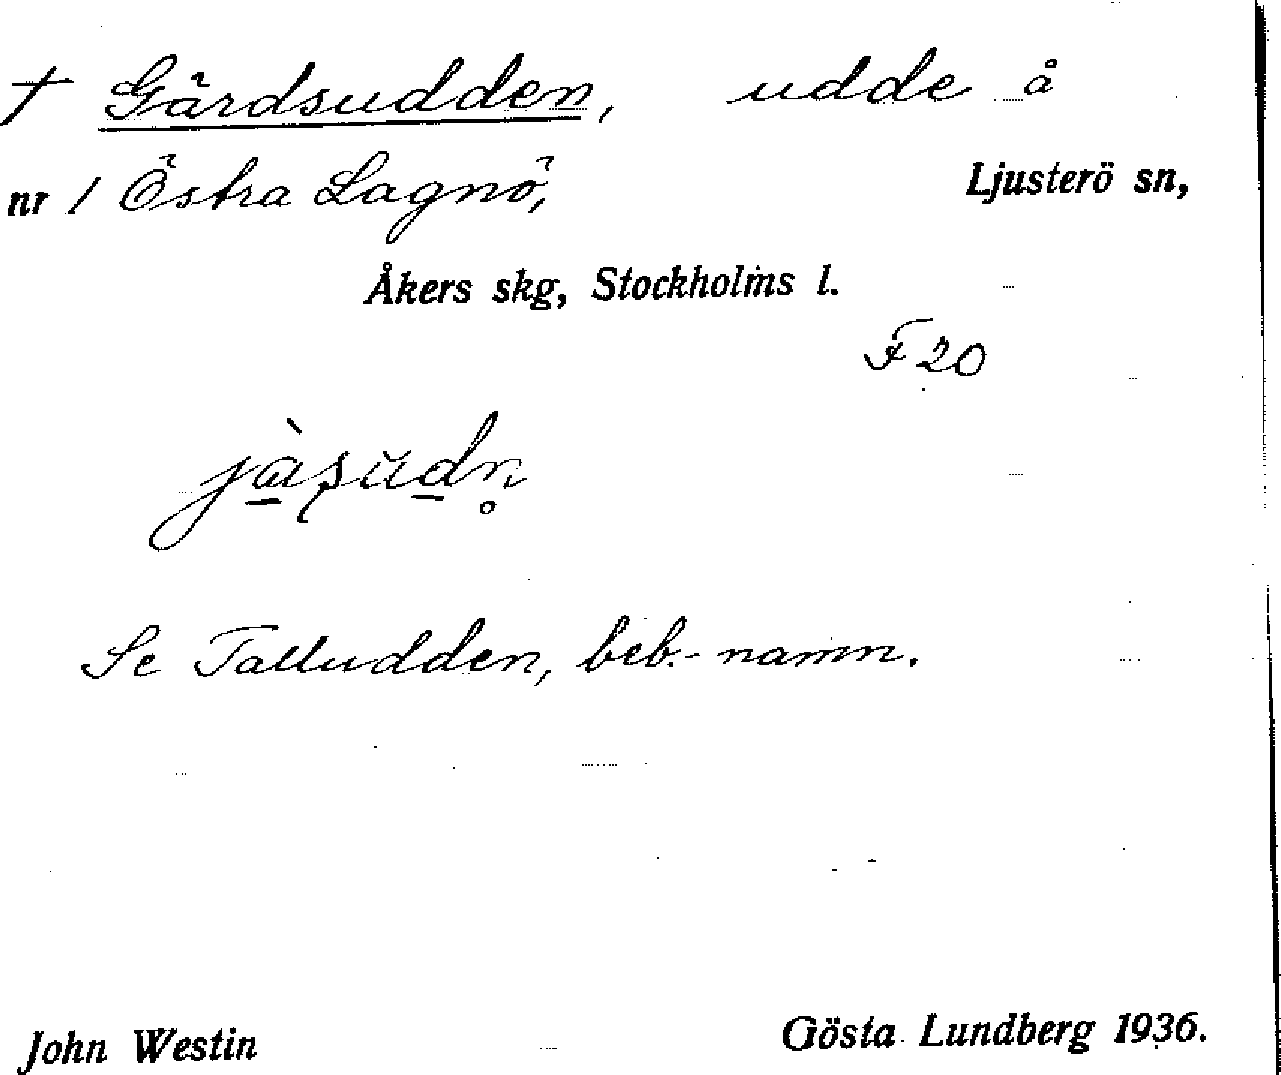 † Gärdsudden, udde å
nr 1 Östra Lagnö, Ljusterö sn,
Åkers skg, Stockholms l.
F 20
Se Talludden, beb.-namn.
John Westin Gösta Lundberg 1936.